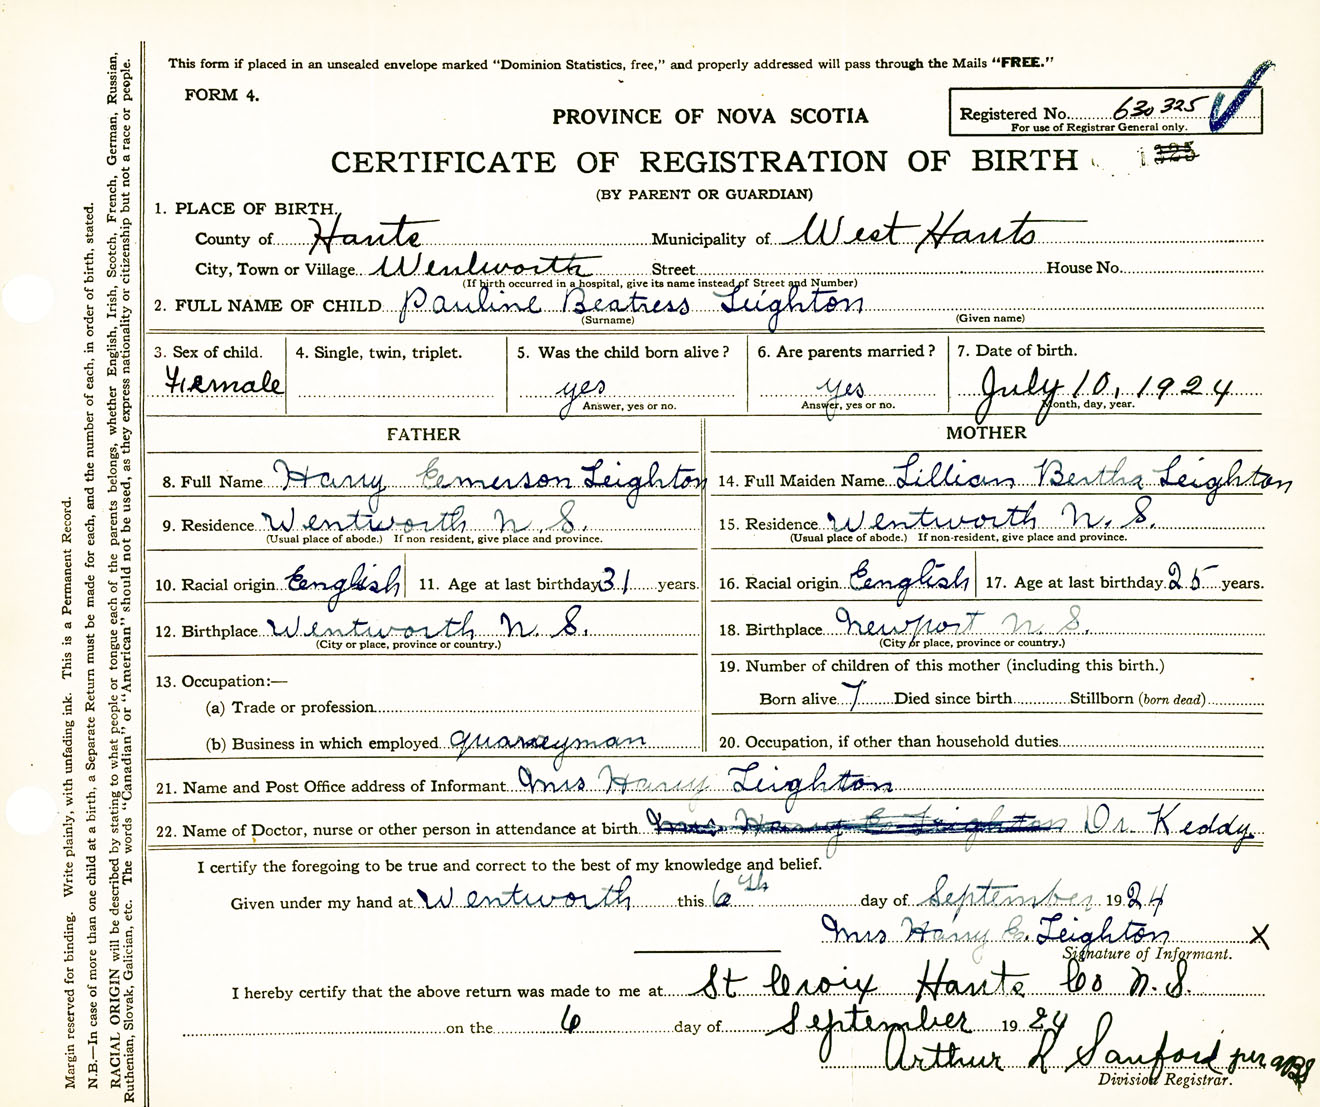 This form if placed in an unsealed envelope marked "Dominion Statistics, free," and properly addressed will pass through the Mails "FREE."
FORM 4.
PROVINCE OF NOVA SCOTIA
Registered No. 630325
For use of Registrar General only.
CERTIFICATE OF REGISTRATION OF BIRTH
(BY PARENT OR GUARDIAN)
1. PLACE OF BIRTH.
County of Hants Municipality of West Hants
City, Town or Village Wentworth Street House No.
(If birth occurred in a hospital, give its name instead of Street and Number)
2. FULL NAME OF CHILD Pauline Beatress Leighton
(Surname) (Given name)
3. Sex of child. 4. Single, twin, triplet. 5. Was the child born alive? 6. Are parents married? 7. Date of birth.
Female yes yes July 10, 1924
Answer, yes or no. Answer, yes or no. Month, day, year.
FATHER MOTHER
8. Full Name Harry Eemerson Leighton 14. Full Maiden Name Lillian Bertha Leighton
9. Residence Wentworth N. S. 15. Residence Wentworth N. S.
(Usual place of abode.) If non resident, give place and province. (Usual place of abode.) If non-resident, give place and province.
10. Racial origin Eenglish 11. Age at last birthday 31 years. 16. Racial origin Eenglish 17. Age at last birthday 25 years.
12. Birthplace Wentworth N. S. 18. Birthplace Newport N. S.
(City or place, province or country.) (City or place, province or country.)
13. Occupation:— 19. Number of children of this mother (including this birth.)
(a) Trade or profession Born alive 7 Died since birth Stillborn (born dead)
(b) Business in which employed quarreyman 20. Occupation, if other than household duties
21. Name and Post Office address of Informant Mrs Harry Leighton
22. Name of Doctor, nurse or other person in attendance at birth Mrs Harry E Leighton Dr. Keddy.
I certify the foregoing to be true and correct to the best of my knowledge and belief.
Given under my hand at Wentworth this 6th day of September 1924
Mrs Harry E. Leighton X
Signature of Informant.
I hereby certify that the above return was made to me at St Croix Hants Co N.S.
on the 6 day of September 1924
Arthur R Sanford per
Division Registrar.
Margin reserved for binding. Write plainly, with unfading ink. This is a Permanent Record.
N.B.—In case of more than one child at a birth, a Separate Return must be made for each, and the number of each, in order of birth, stated.
RACIAL ORIGIN will be described by stating to what people or tongue each of the parents belongs, whether English, Irish, Scotch, French, German, Russian,
Ruthenian, Slovak, Galician, etc. The words "Canadian" or "American" should not be used, as they express nationality or citizenship but not a race or people.